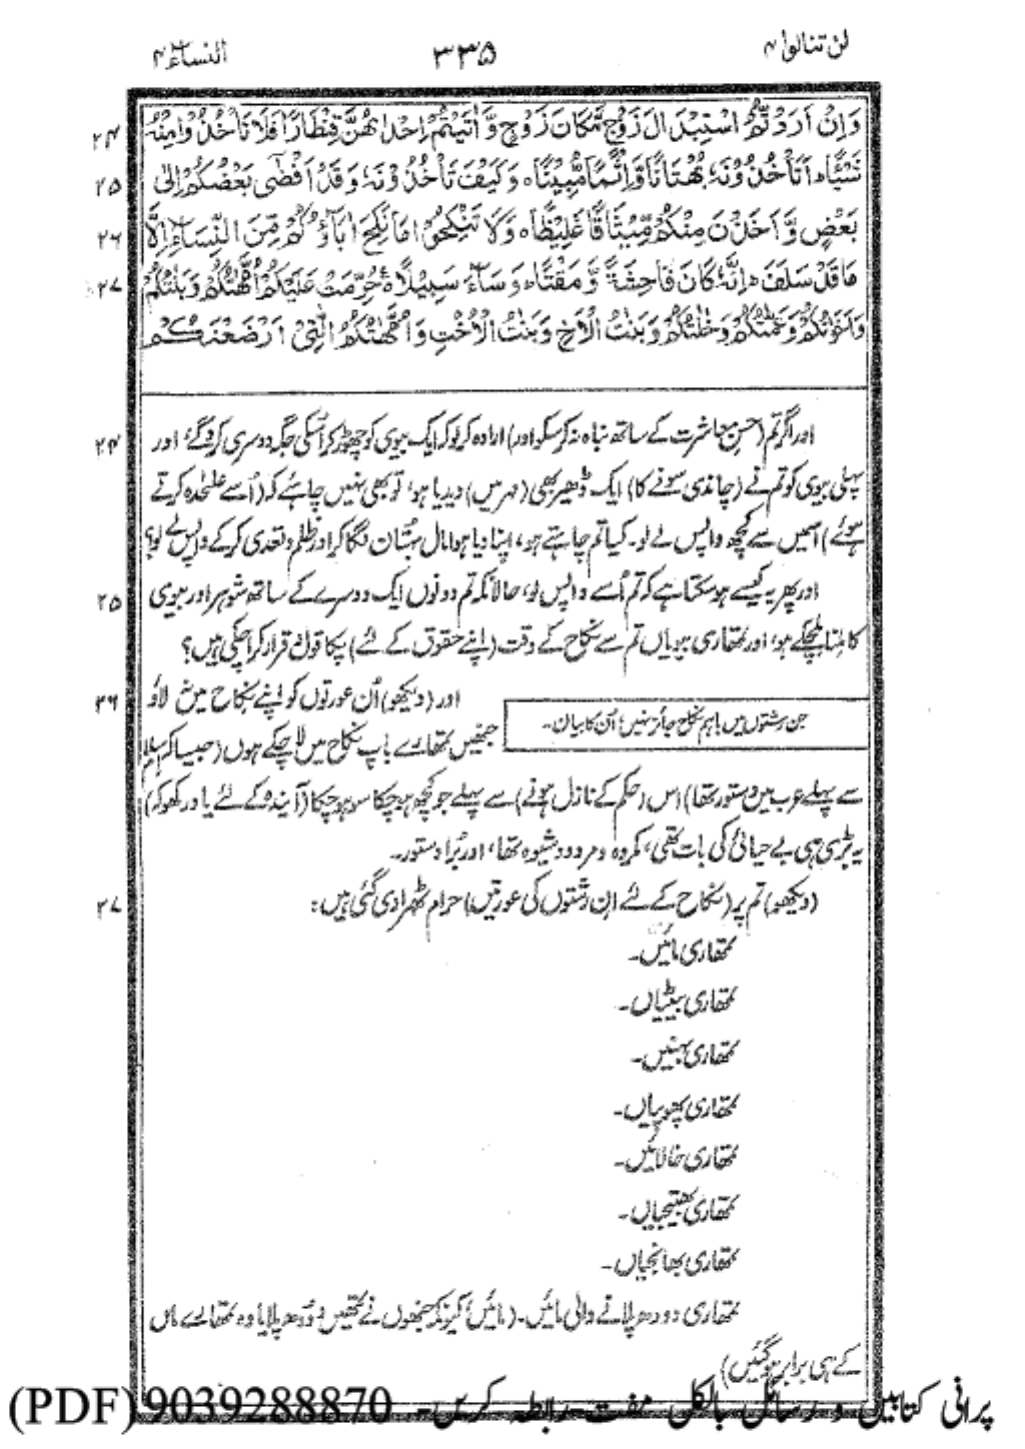 لن تنالوا ۴
۳۳۵
النساء ۴
وَاِنْ اَرَدْتُّمُ اسْتِبْدَالَ زَوْجٍ مَّكَانَ زَوْجٍ وَّاٰتَيْتُمْ اِحْدٰىهُنَّ قِنْطَارًا فَلَا تَاْخُذُوْا مِنْهُ
۲۴
شَيْـًٔا ؕ اَتَاْخُذُوْنَهٗ بُهْتَانًا وَّاِثْمًا مُّبِيْنًا ۝ وَكَيْفَ تَاْخُذُوْنَهٗ وَقَدْ اَفْضٰى بَعْضُكُمْ اِلٰى
۲۵
بَعْضٍ وَّاَخَذْنَ مِنْكُمْ مِّيْثَاقًا غَلِيْظًا ۝ وَلَا تَنْكِحُوْا مَا نَكَحَ اٰبَآؤُكُمْ مِّنَ النِّسَآءِ اِلَّا
۲۶
مَا قَدْ سَلَفَ ؕ اِنَّهٗ كَانَ فَاحِشَةً وَّمَقْتًا ؕ وَسَآءَ سَبِيْلًا ۝ حُرِّمَتْ عَلَيْكُمْ اُمَّهٰتُكُمْ وَبَنٰتُكُمْ
۲۷
وَاَخَوٰتُكُمْ وَعَمّٰتُكُمْ وَخٰلٰتُكُمْ وَبَنٰتُ الْاَخِ وَبَنٰتُ الْاُخْتِ وَاُمَّهٰتُكُمُ الّٰتِيْٓ اَرْضَعْنَكُمْ
اور اگر تم (حسن معاشرت کے ساتھ نباہ نہ کر سکو اور) ارادہ کر لو کہ ایک بیوی کو چھوڑ کر اُسکی جگہ دوسری کرو گے، اور
۲۴
پہلی بیوی کو تم نے (چاندی سونے کا) ایک ڈھیر بھی (مہر میں) دیدیا ہو، تو بھی نہیں چاہئے کہ (اُسے علٰحدہ کرتے
ہوئے) اسمیں سے کچھ واپس لے لو۔ کیا تم چاہتے ہو، اپنا دیا ہوا مال بہتان لگا کر اور ظلم و تعدی کرکے واپس لے لو؟
اور پھر یہ کیسے ہو سکتا ہے کہ تم اُسے واپس لو، حالانکہ تم دونوں ایک دوسرے کے ساتھ شوہر اور بیوی
۲۵
کا ملنا مل چکے ہو، اور تمھاری بیویاں تم سے نکاح کے وقت (اپنے حقوق کے لئے) پکا قول قرار کرا چکی ہیں؟
اور (دیکھو) اُن عورتوں کو اپنے نکاح میں نہ لاؤ
۲۶
جن رشتوں میں باہم نکاح جائز نہیں، اُن کا بیان۔
جنھیں تمھارے باپ نکاح میں لا چکے ہوں (جیسا کہ اسلام
سے پہلے عرب میں دستور تھا) اس (حکم کے نازل ہونے) سے پہلے جو کچھ ہو چکا سو ہو چکا (آیندہ کے لئے یاد رکھو کہ)
یہ بڑی ہی بے حیائی کی بات تھی، مکروہ و مردود شیوہ تھا، اور بُرا دستور۔
(دیکھو) تم پر (نکاح کے لئے ان رشتوں کی عورتیں) حرام ٹھرا دی گئی ہیں:
۲۷
تمھاری مائیں۔
تمھاری بیٹیاں۔
تمھاری بہنیں۔
تمھاری پھوپیاں۔
تمھاری خالائیں۔
تمھاری بھتیجیاں۔
تمھاری بھانجیاں۔
تمھاری دودھ پلانے والی مائیں۔ (مائیں کیونکہ جنھوں نے تمھیں دُودھ پلایا وہ تمھارے ماں
کے ہی برابر ہو گئیں)
پرانی کتابیں و رسائل بالکل مفت رابطہ کریں۔ 9039288870 (PDF)